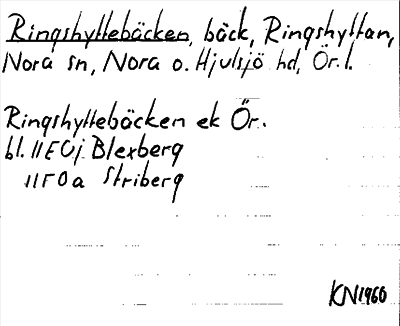 Ringshyttebäcken, bäck, Ringshyttan,
Nora sn, Nora o. Hjulsjö hd, Ör. l.
Ringshyttebäcken ek Ör.
bl. 11E0j Blexberg
11F0a Striberg
KN1966